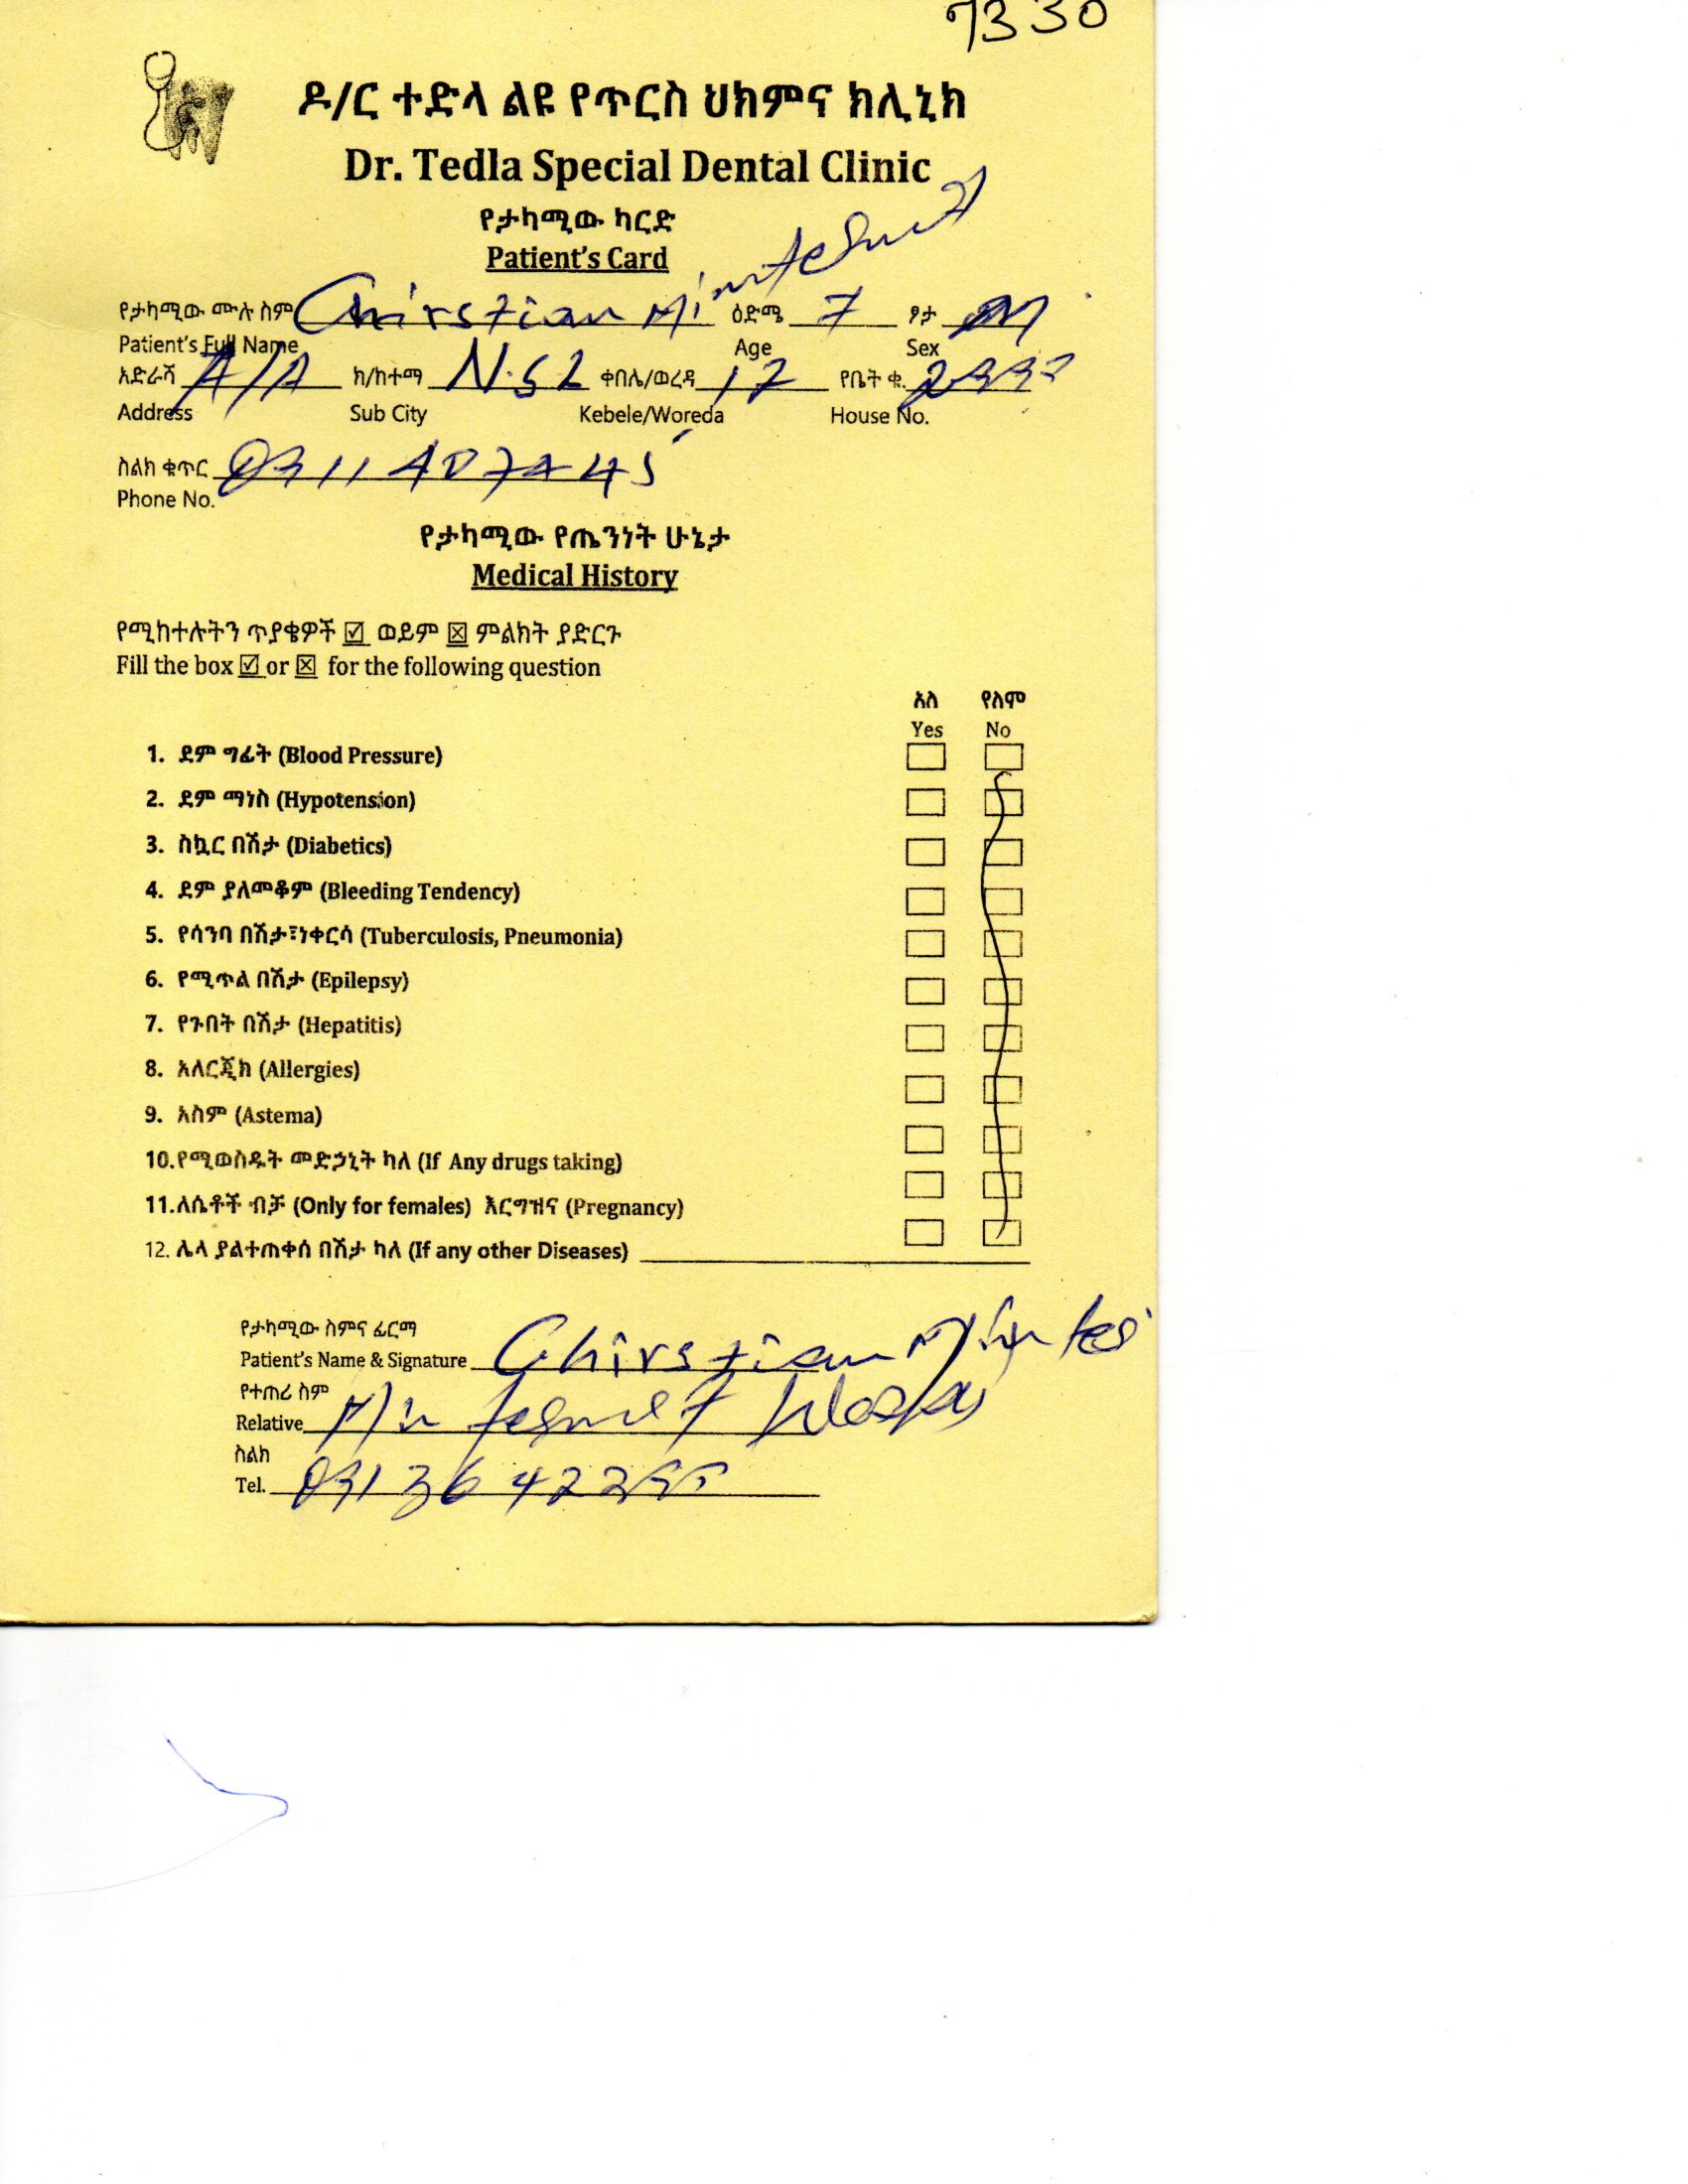 7330
ዶ/ር ተድላ ልዩ የጥርስ ህክምና ክሊኒክ
Dr. Tedla Special Dental Clinic
የታካሚው ካርድ
Patient's Card
የታካሚው ሙሉ ስም Chirstian ዕድሜ 7 ፆታ M
Patient's Full Name Age Sex
አድራሻ A/A ክ/ከተማ N.S.L ቀበሌ/ወረዳ 17 የቤት ቁ.
Address Sub City Kebele/Woreda House No.
ስልክ ቁጥር
Phone No.
የታካሚው የጤንነት ሁኔታ
Medical History
የሚከተሉትን ጥያቄዎች ☑ ወይም ☒ ምልክት ያድርጉ
Fill the box ☑ or ☒ for the following question
አለ የለም
Yes No
1. ደም ግፊት (Blood Pressure)
2. ደም ማነስ (Hypotension)
3. ስኳር በሽታ (Diabetics)
4. ደም ያለመቆም (Bleeding Tendency)
5. የሳንባ በሽታ፣ነቀርሳ (Tuberculosis, Pneumonia)
6. የሚጥል በሽታ (Epilepsy)
7. የጉበት በሽታ (Hepatitis)
8. አለርጂክ (Allergies)
9. አስም (Astema)
10.የሚወስዱት መድኃኒት ካለ (If Any drugs taking)
11.ለሴቶች ብቻ (Only for females) እርግዝና (Pregnancy)
12. ሌላ ያልተጠቀሰ በሽታ ካለ (If any other Diseases)
የታካሚው ስምና ፊርማ
Patient's Name & Signature Chirstian
የተጠሪ ስም
Relative
ስልክ
Tel.